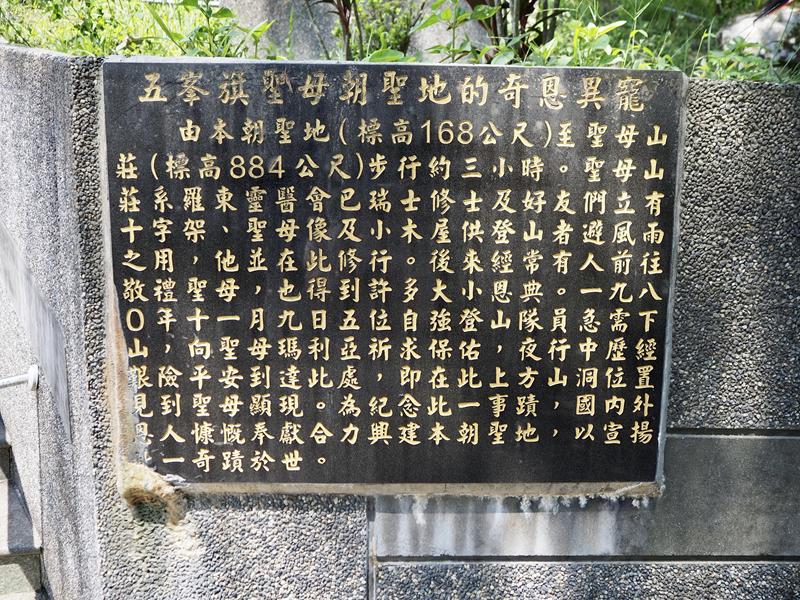 五峯旗聖母朝聖地的奇恩異寵
由本朝聖地(標高168公尺)至聖母山
莊(標高884公尺)步行約三小時。聖母山
莊系羅東靈醫會已瑞士修士及好友們立有
十字架、聖母像及小木屋供登山者避風雨
之用，他並在此修行。後來經常有人前往
敬禮聖母，也得到許多大小恩典。一九八
0年十一月九日五位自強登山隊員急需下
山，向聖母瑪利亞祈求保佑，夜行中歷經
艱險平安到達此處，即在此上方山洞位置
見到聖母顯現。為紀念此一事蹟，國內外
恩人慷慨奉獻合力興建本朝聖地，以宣揚
一奇蹟於世。